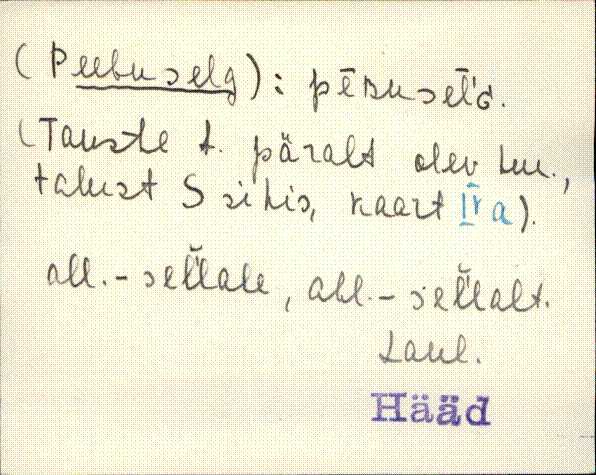 (Peebu selg): pēʙu sel̄'ɢ.
(Tauste t. päralt olev hm.,
talust S sihis, kaart IVa).
all. - sel̆lale, abl. - sel̆lalt.
Laul.
Hääd